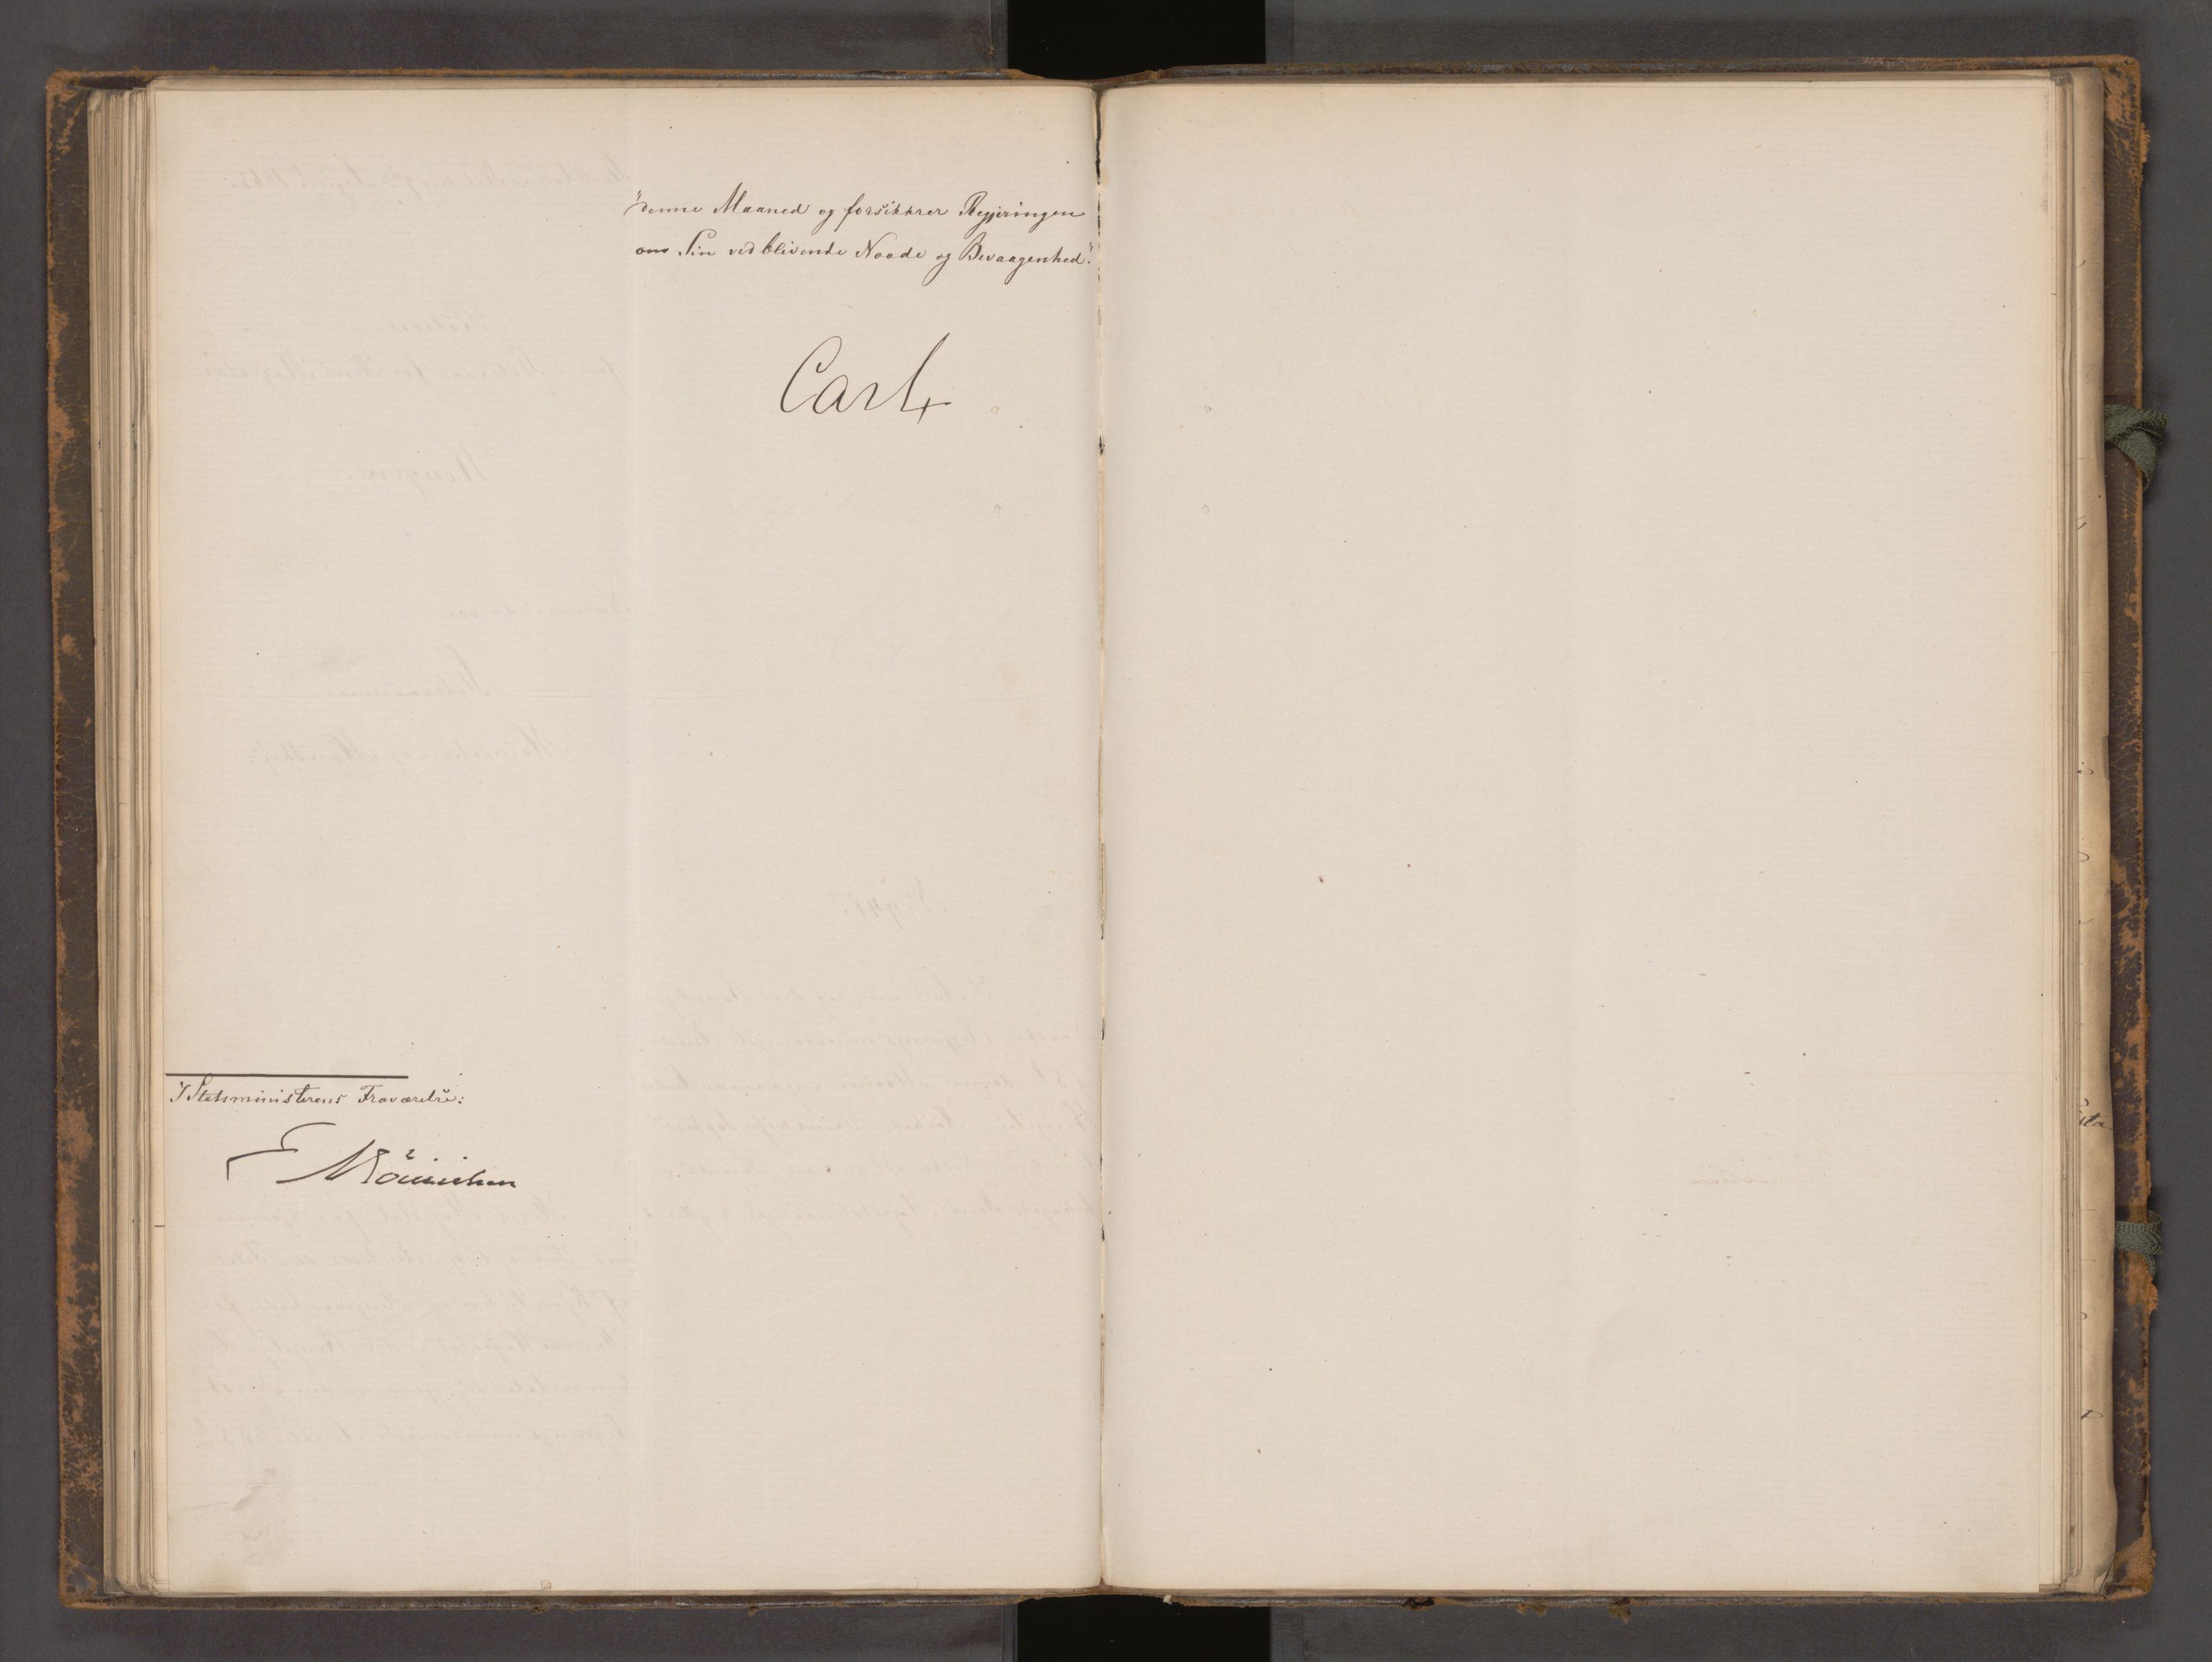 "denne Maaned og forsikkrer Regjeringen
om Sin vedblivende Naade og Bevaagenhed."
Carl
I Statsministerens Fraværelse:
E Möinichen